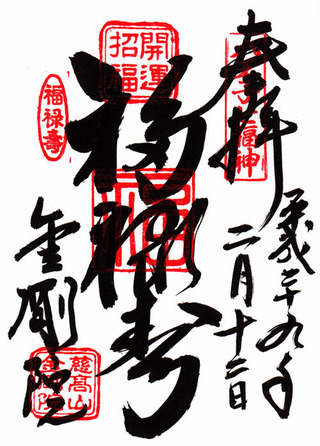 奉拝
平成二十九年
二月十二日
開運
招福
福禄寿
福禄壽
金剛院
慈高山
金剛院